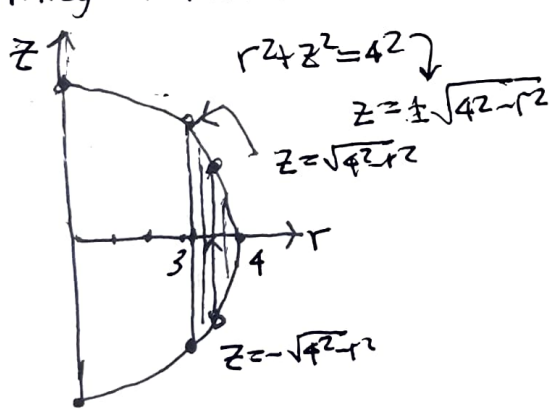 z
r²+z²=4²
z=±√4²-r²
z=√4²-r²
r
3
4
z=-√4²-r²